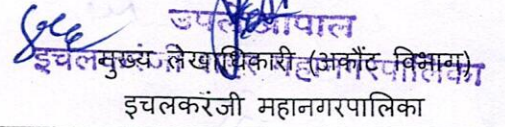 उपलेखापाल
मुख्य लेखाधिकारी (अकौंट विभाग)
इचलकरंजी महानगरपालिका